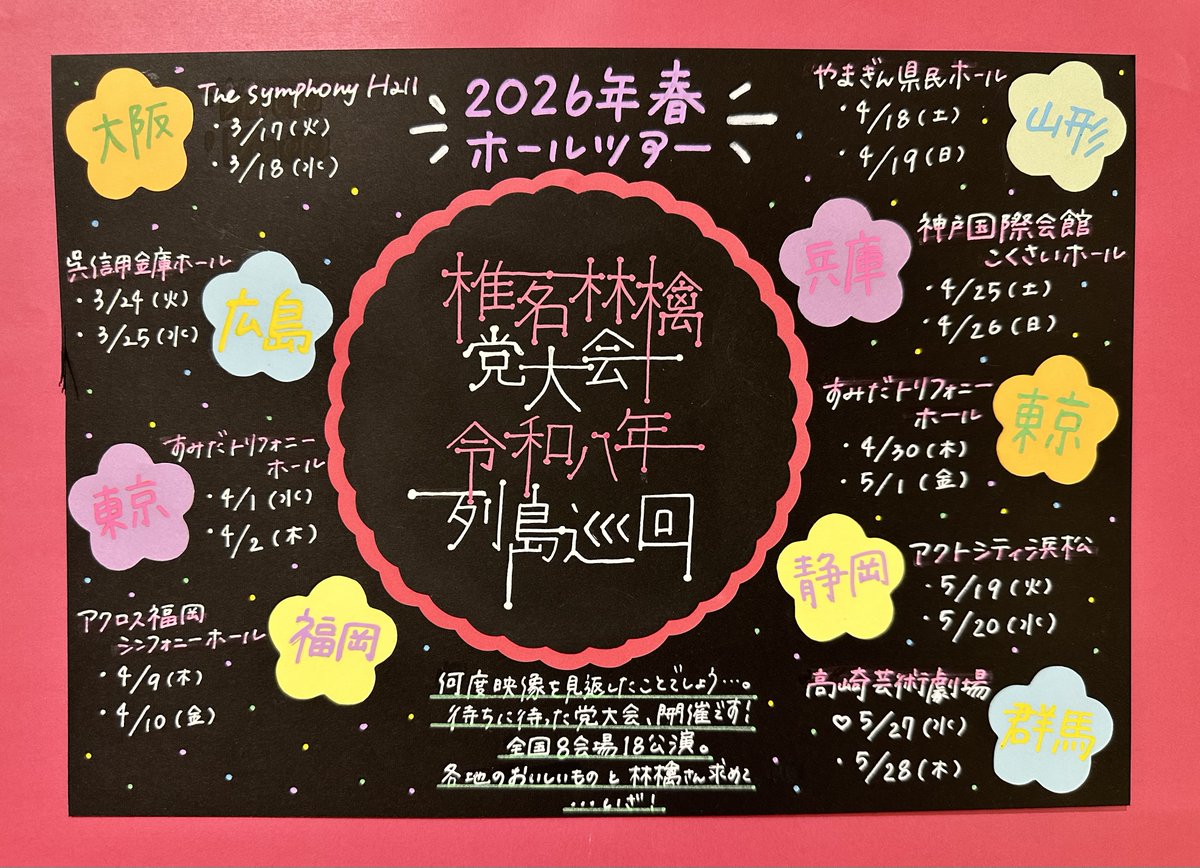 2026年春
ホールツアー
大阪
The Symphony Hall
・3/17(火)
・3/18(水)
呉信用金庫ホール
・3/24(火)
・3/25(水)
広島
東京
すみだトリフォニー
ホール
・4/1(水)
・4/2(木)
アクロス福岡
シンフォニーホール
・4/9(木)
・4/10(金)
福岡
椎名林檎
党大会
令和八年
列島巡回
やまぎん県民ホール
・4/18(土)
・4/19(日)
山形
兵庫
神戸国際会館
こくさいホール
・4/25(土)
・4/26(日)
すみだトリフォニー
ホール
・4/30(木)
・5/1(金)
東京
静岡
アクトシティ浜松
・5/19(火)
・5/20(水)
高崎芸術劇場
♡5/27(水)
・5/28(木)
群馬
何度映像を見返したことでしょう…。
待ちに待った党大会、開催です!
全国8会場18公演。
各地のおいしいものと林檎さん求めて
…いざ!